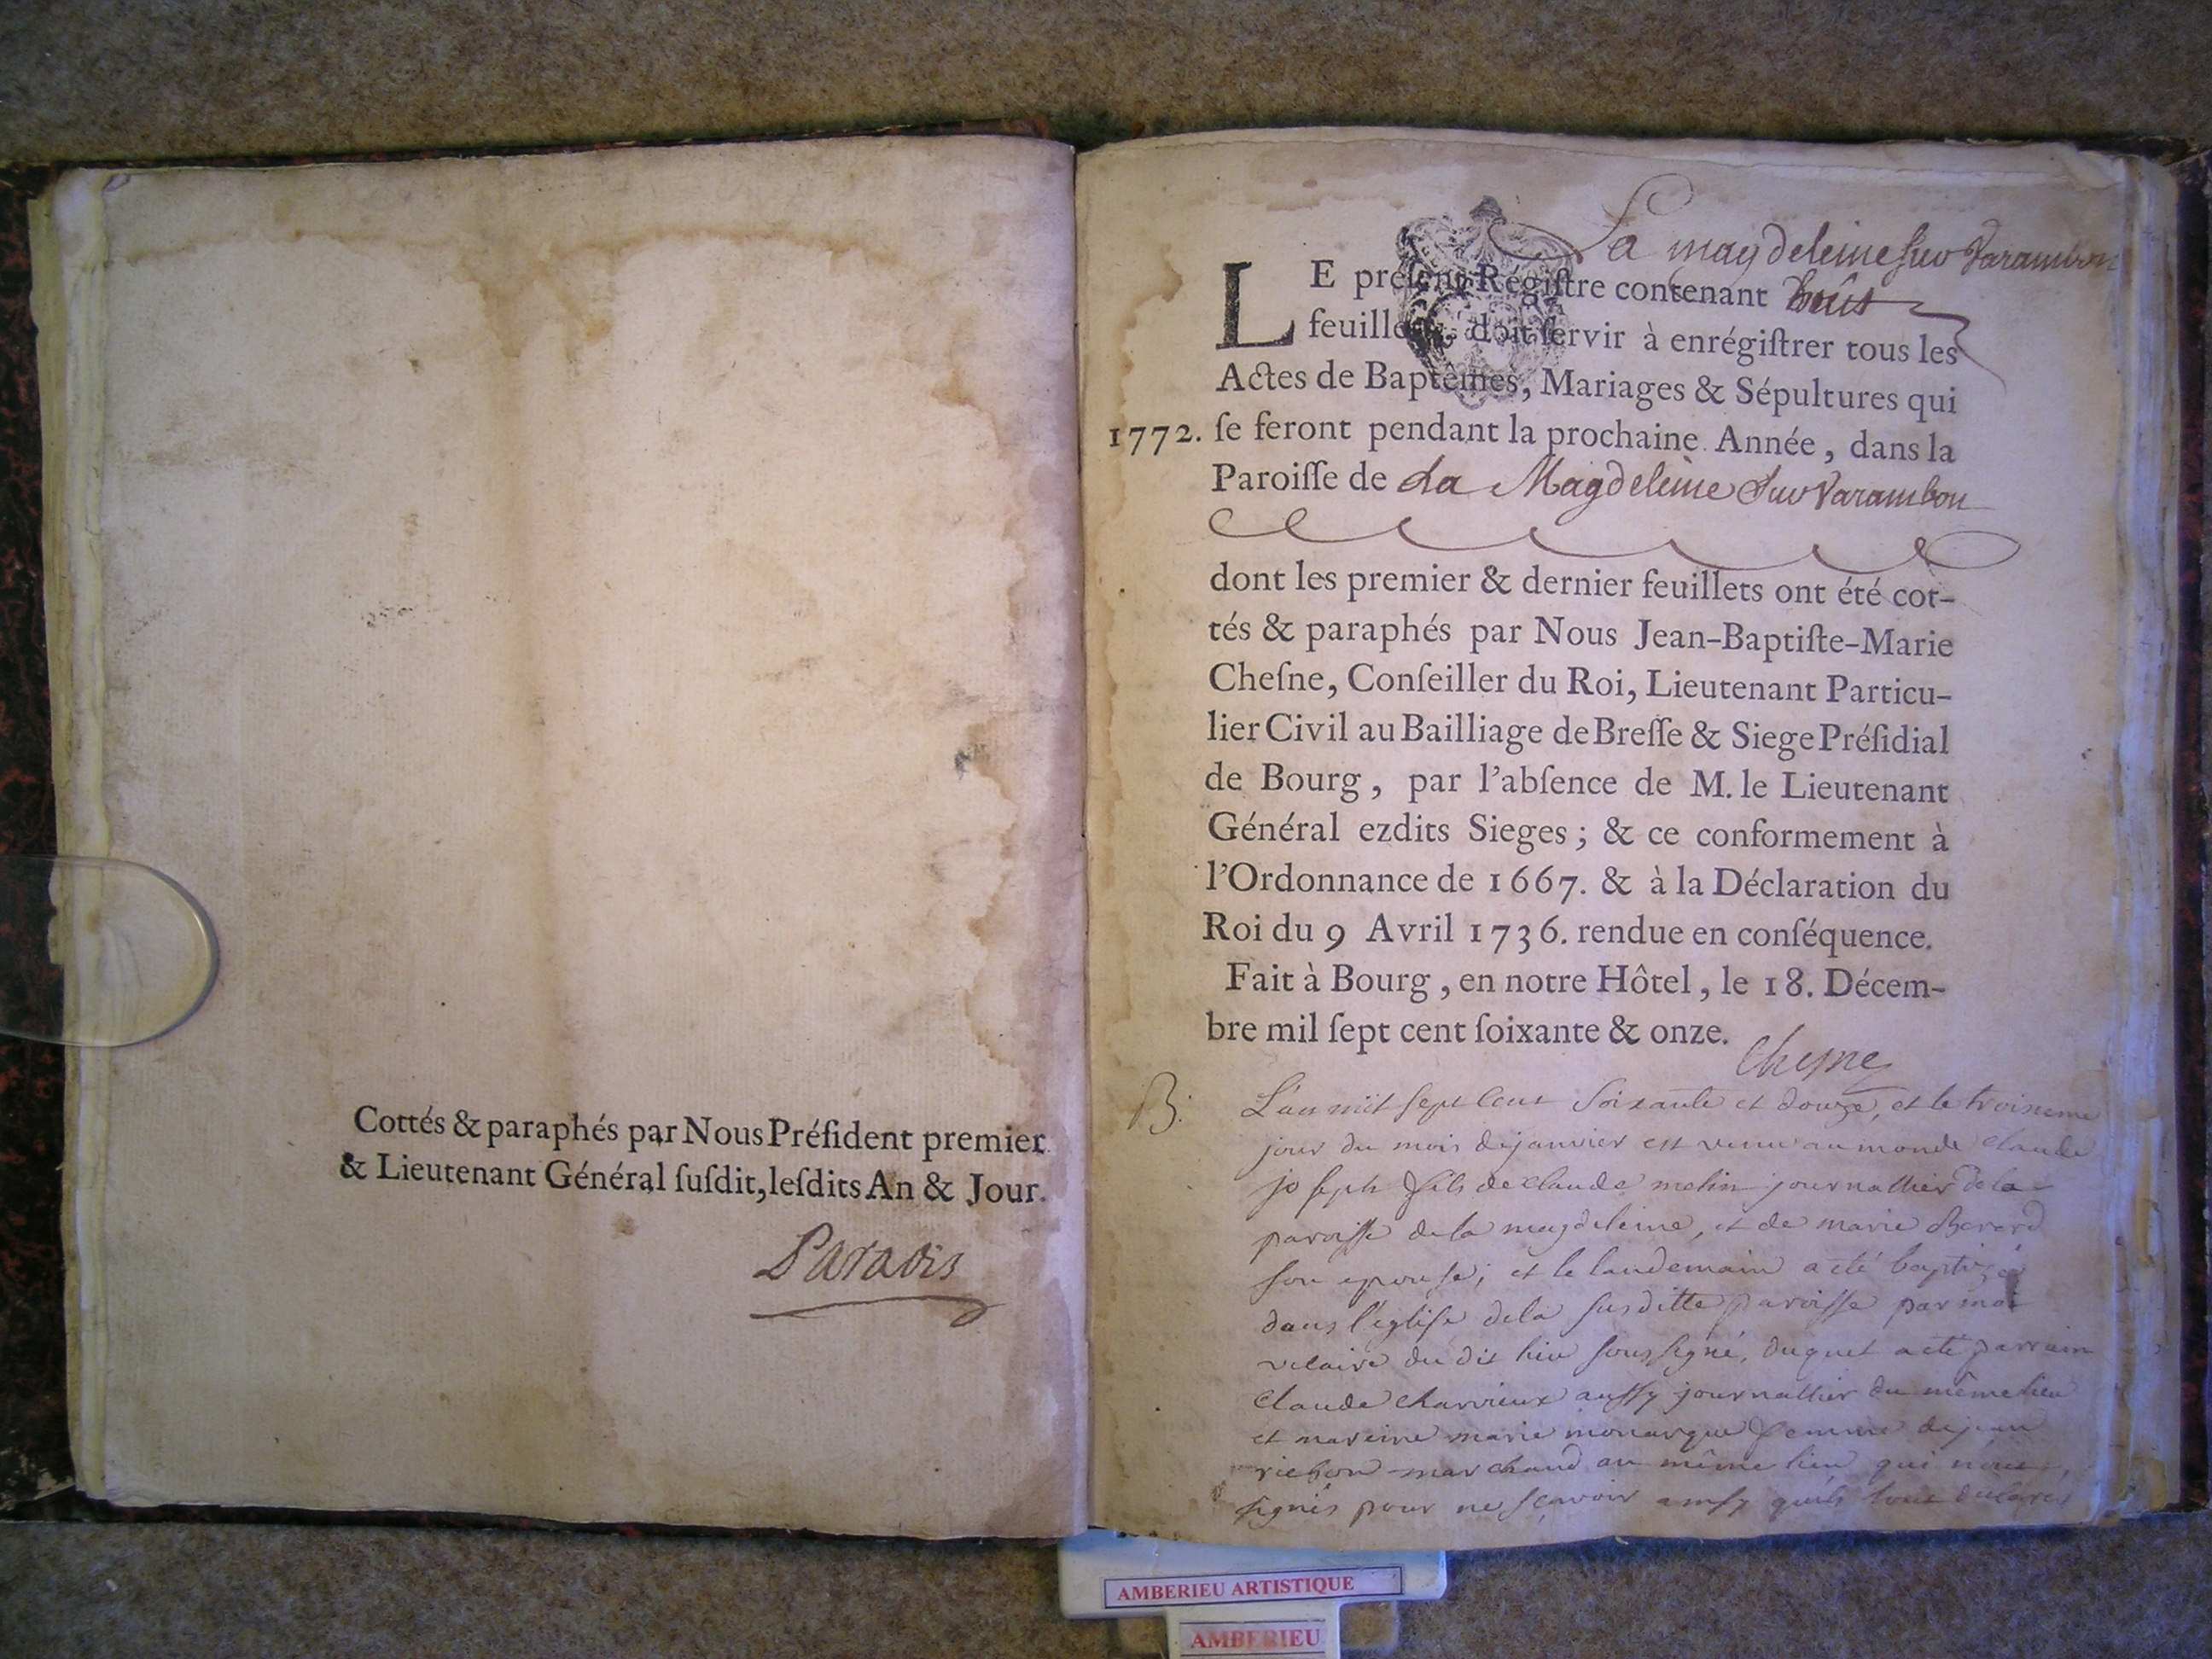 Cottés & paraphés par Nous Préſident premier
& Lieutenant Général ſuſdit, leſdits An & Jour.
Paradis
La magdeleine sur Varambon
LE préſent Régiſtre contenant huit
feuillets, doit ſervir à enrégiſtrer tous les
Actes de Baptêmes, Mariages & Sépultures qui
1772. ſe feront pendant la prochaine Année, dans la
Paroiſſe de La Magdeleine Sur Varambon
dont les premier & dernier feuillets ont été cot-
tés & paraphés par Nous Jean-Baptiſte-Marie
Cheſne, Conſeiller du Roi, Lieutenant Particu-
lier Civil au Bailliage de Breſſe & Siege Préſidial
de Bourg, par l'abſence de M. le Lieutenant
Général ezdits Sieges; & ce conformement à
l'Ordonnance de 1667. & à la Déclaration du
Roi du 9 Avril 1736. rendue en conſéquence.
Fait à Bourg, en notre Hôtel, le 18. Décem-
bre mil ſept cent ſoixante & onze.
Chesne
B. L'an mil sept cent soixante et douze, et le troisieme
jour du mois de janvier est venu au monde claude
joseph fils de claude melin journallier de la
paroisse de la magdeleine, et de marie Berard
son epouse; et le landemain a eté baptisé
dans l'eglise de la susditte paroisse par moi
vicaire du dit lieu soussigné, duquel a eté parrain
claude charvieux aussy journallier du même lieu
et mareine marie monarque femme de jean
richon marchand au même lieu qui n'ont
signés pour ne sçavoir ainsy qu'ils l'ont declarés
AMBERIEU ARTISTIQUE
AMBERIEU